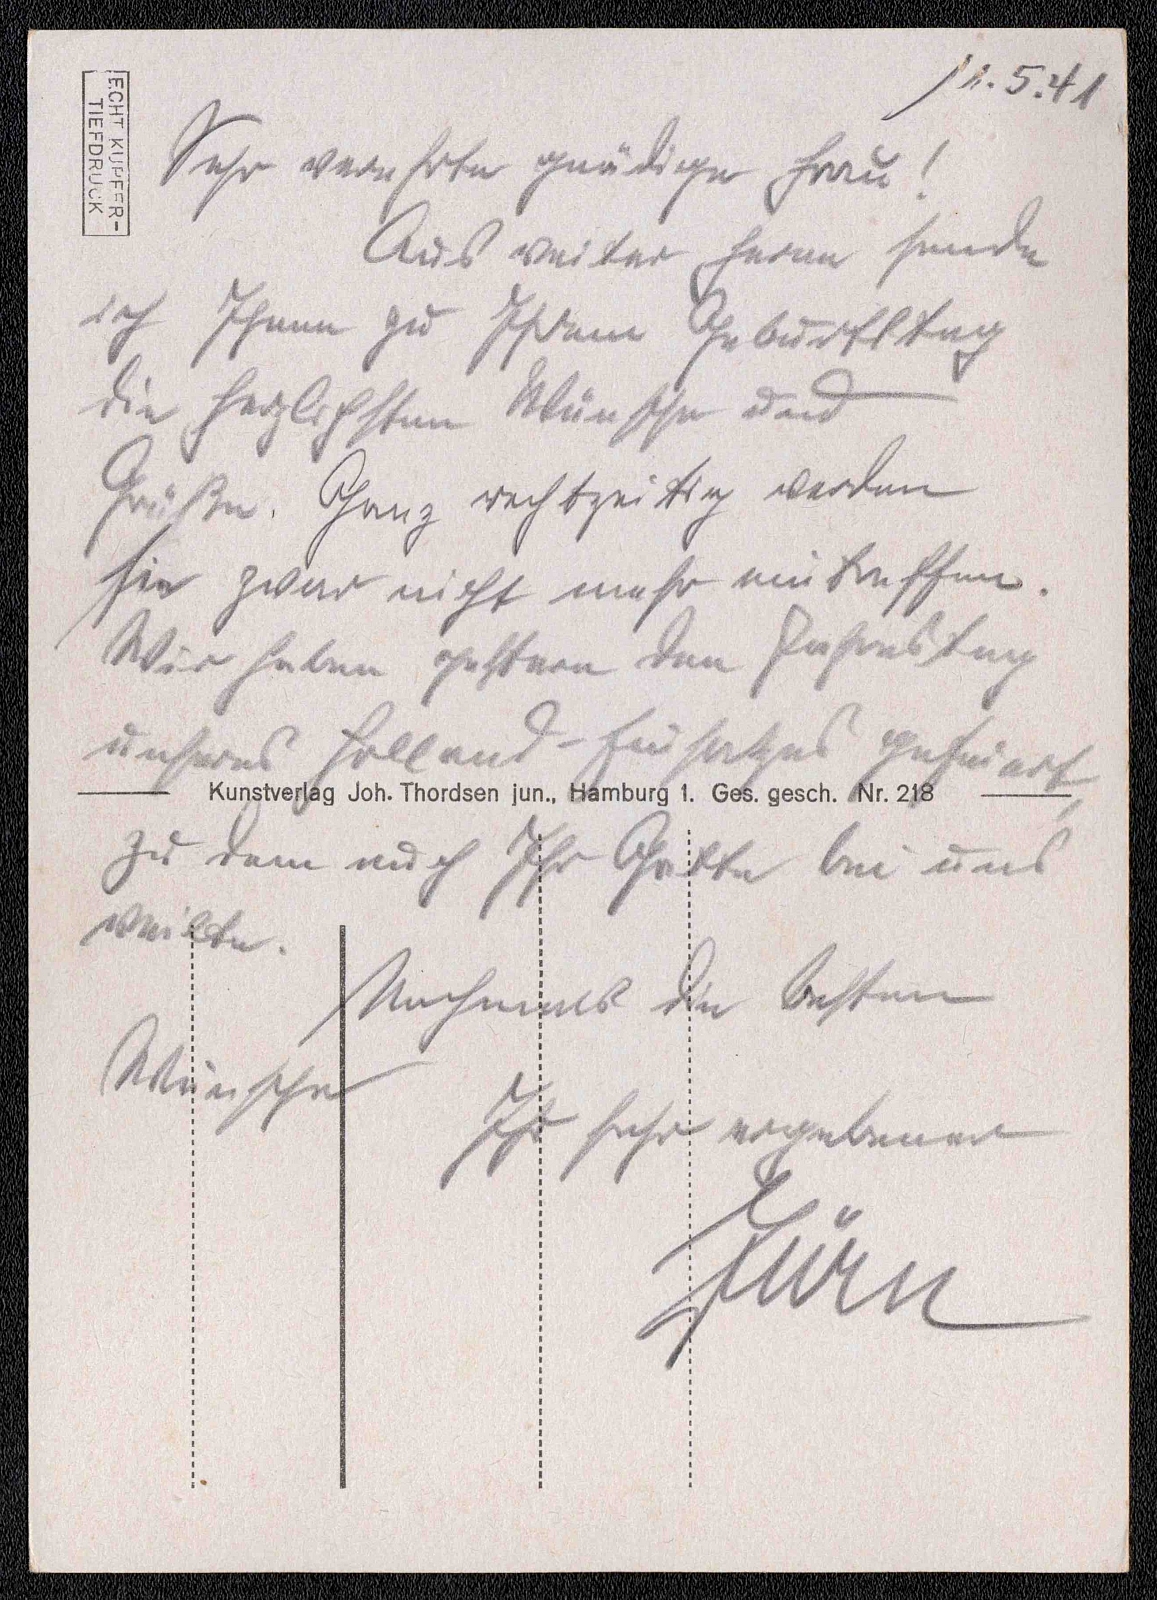 11.5.41
ECHT KUPFER-
TIEFDRUCK
Sehr verehrte gnädige Frau!
Aus weiter Ferne sende
ich Ihnen zu Ihrem Geburtstag
die herzlichsten Wünsche und
Grüße. Ganz rechtzeitig werden
sie zwar nicht mehr eintreffen.
Wir haben gestern den Jahrestag
unseres Holland-Einsatzes gefeiert,
Kunstverlag Joh. Thordsen jun., Hamburg 1. Ges. gesch. Nr. 218
zu dem auch Ihr Gatte bei uns
weilte.
Nochmals die besten
Wünsche
Ihr sehr ergebener
Zürn